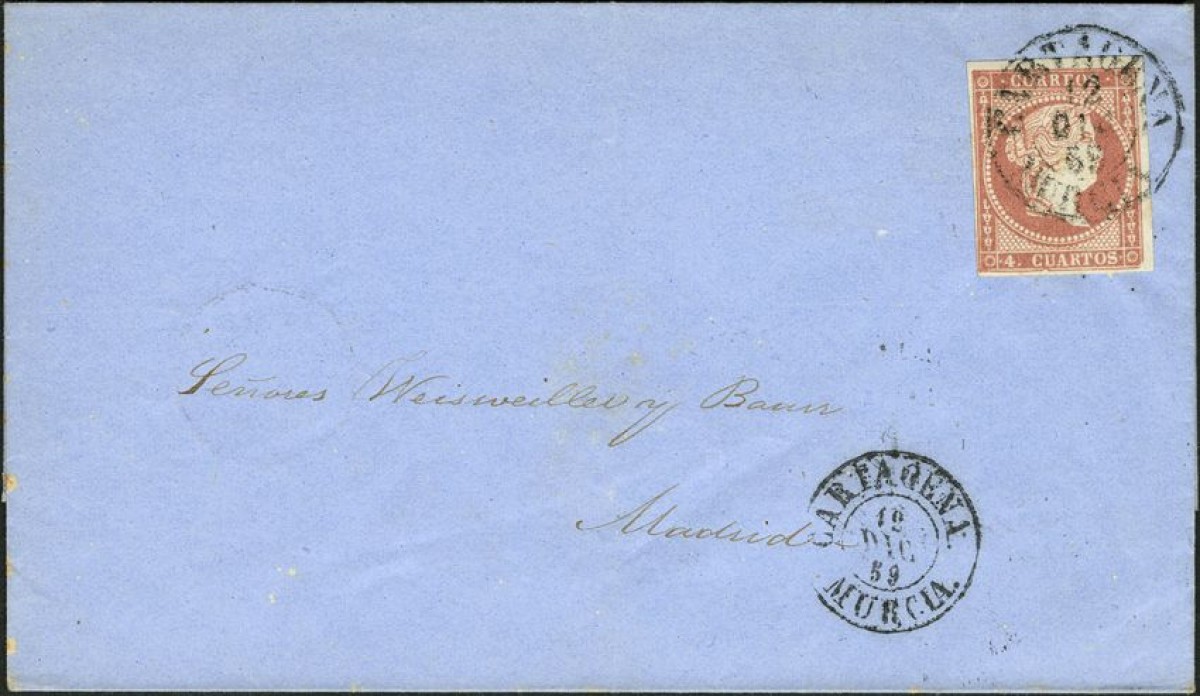 CORREOS
4. CUARTOS
CARTAGENA
MURCIA
Señores Weisweiller y Baur
Madrid
CARTAGENA.
DIC
59
MURCIA.